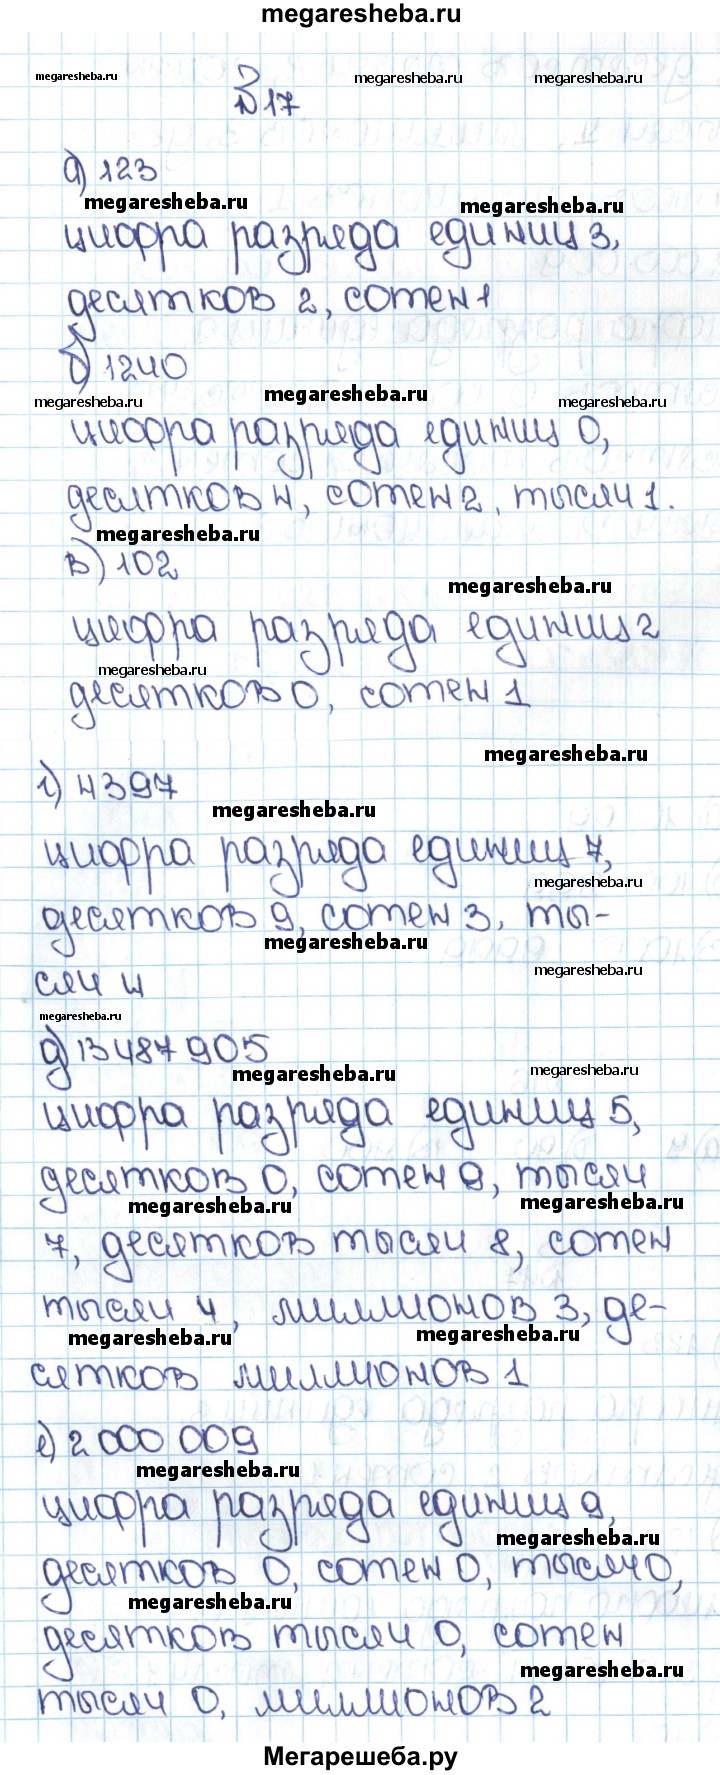 megaresheba.ru
megaresheba.ru megaresheba.ru megaresheba.ru
№17
а) 123
megaresheba.ru megaresheba.ru
цифра разряда единиц 3,
десятков 2, сотен 1
б) 1240
megaresheba.ru megaresheba.ru megaresheba.ru
цифра разряда единиц 0,
десятков 4, сотен 2, тысяч 1.
megaresheba.ru
в) 102
megaresheba.ru
цифра разряда единиц 2
megaresheba.ru
десятков 0, сотен 1
megaresheba.ru
г) 4397
megaresheba.ru
цифра разряда единиц 7,
megaresheba.ru
десятков 9, сотен 3, ты-
megaresheba.ru
сяч 4
megaresheba.ru
megaresheba.ru
д) 13 487 905
megaresheba.ru megaresheba.ru
цифра разряда единиц 5,
десятков 0, сотен 9, тысяч
megaresheba.ru megaresheba.ru
7, десятков тысяч 8, сотен
тысяч 4, миллионов 3, де-
megaresheba.ru megaresheba.ru
сятков миллионов 1
е) 2 000 009
megaresheba.ru
цифра разряда единиц 9,
megaresheba.ru
десятков 0, сотен 0, тысяч 0,
megaresheba.ru
десятков тысяч 0, сотен
megaresheba.ru
тысяч 0, миллионов 2
Мегарешеба.ру